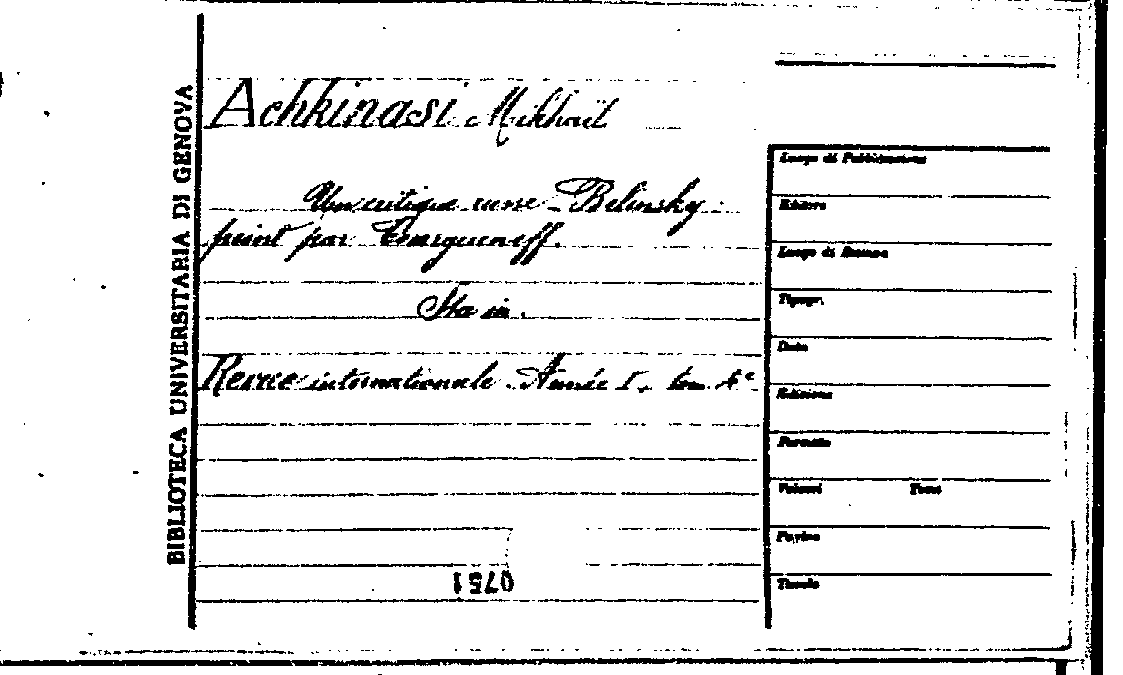 BIBLIOTECA UNIVERSITARIA DI GENOVA
Achkinasi Mikhail
Un critique russe - Belinsky
peint par Tourgueneff.
Sta in.
Revue internationale. Année I, tom. 4°
0751
Luogo di Pubblicazione
Editore
Luogo di Stampa
Tipogr.
Data
Edizione
Formato
Volumi Tomi
Pagine
Tavole